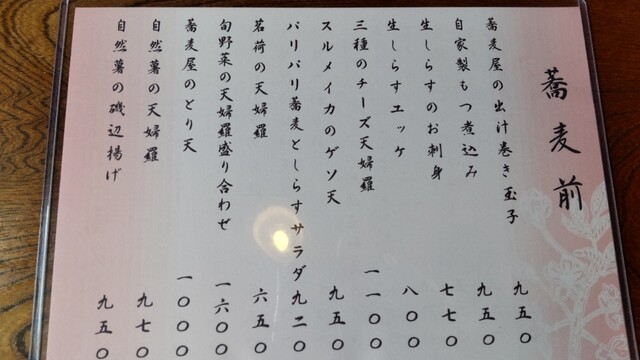 蕎麦前
蕎麦屋の出汁巻き玉子 九五〇
自家製もつ煮込み 九五〇
生しらすのお刺身 七七〇
生しらすユッケ 八〇〇
三種のチーズ天婦羅 一一〇〇
スルメイカのゲソ天 九五〇
パリパリ蕎麦としらすサラダ 九二〇
茗荷の天婦羅 六五〇
旬野菜の天婦羅盛り合わせ 一六〇〇
蕎麦屋のとり天 一〇〇〇
自然薯の天婦羅 九七〇
自然薯の磯辺揚げ 九五〇